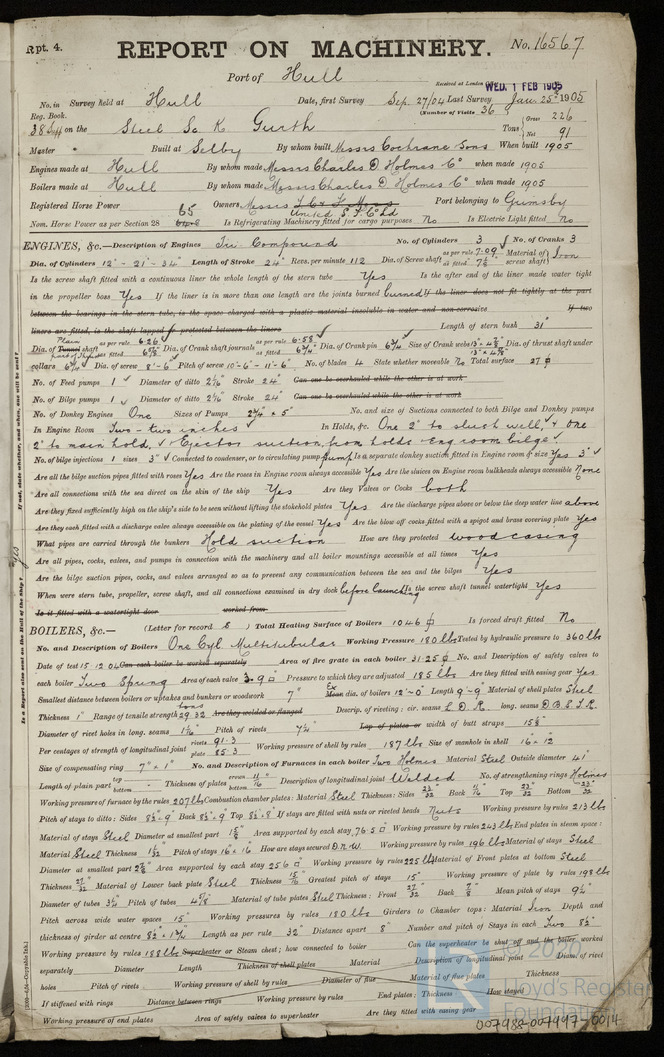 Rpt. 4.
REPORT ON MACHINERY. No. 16567
Port of Hull
Received at London WED. 1 FEB 1905
No. in Survey held at Hull Date, first Survey Sep. 27/04 Last Survey Jan 25th 1905
Reg. Book. (Number of Visits 36
38 Supp on the Steel Sc K Gurth Tons Gross 226 Net 91
Master Built at Selby By whom built Messrs Cochrane Sons When built 1905
Engines made at Hull By whom made Messrs Charles D Holmes Co when made 1905
Boilers made at Hull By whom made Messrs Charles D Holmes Co when made 1905
Registered Horse Power Owners Messrs United S. F. Co Ld Port belonging to Grimsby
Nom. Horse Power as per Section 28 65 Is Refrigerating Machinery fitted for cargo purposes No Is Electric Light fitted No
ENGINES, &c.—Description of Engines Tri Compound No. of Cylinders 3 No. of Cranks 3
Dia. of Cylinders 12" - 21" - 34" Length of Stroke 24" Revs. per minute 112 Dia. of Screw shaft as per rule 7.09 as fitted 7 1/2" Material of screw shaft Iron
Is the screw shaft fitted with a continuous liner the whole length of the stern tube Yes Is the after end of the liner made water tight
in the propeller boss Yes If the liner is in more than one length are the joints burned burned If the liner does not fit tightly at the part
between the bearings in the stern tube, is the space charged with a plastic material insoluble in water and non-corrosive If two
liners are fitted, is the shaft lapped or protected between the liners Length of stern bush 31"
Dia. of Tunnel shaft as per rule 6.26 as fitted 6 5/8" Dia. of Crank shaft journals as per rule 6.58 as fitted 6 3/4" Dia. of Crank pin 6 3/4" Size of Crank webs 13" x 4 3/8" Dia. of thrust shaft under
collars 6 3/4" Dia. of screw 8'-6" Pitch of screw 10'-6" - 11'-6" No. of blades 4 State whether moveable No Total surface 27
No. of Feed pumps 1 Diameter of ditto 2 7/16" Stroke 24" Can one be overhauled while the other is at work
No. of Bilge pumps 1 Diameter of ditto 2 7/16" Stroke 24" Can one be overhauled while the other is at work
No. of Donkey Engines One Sizes of Pumps 2 3/4" x 5" No. and size of Suctions connected to both Bilge and Donkey pumps
In Engine Room Two - two inches In Holds, &c. One 2" to slush well, & one
2" to main hold, Ejector suction from holds & eng room bilge
No. of bilge injections 1 sizes 3" Connected to condenser, or to circulating pump pump Is a separate donkey suction fitted in Engine room & size Yes 3"
Are all the bilge suction pipes fitted with roses Yes Are the roses in Engine room always accessible Yes Are the sluices on Engine room bulkheads always accessible None
Are all connections with the sea direct on the skin of the ship Yes Are they Valves or Cocks both
Are they fixed sufficiently high on the ship's side to be seen without lifting the stokehold plates Yes Are the discharge pipes above or below the deep water line above
Are they each fitted with a discharge valve always accessible on the plating of the vessel Yes Are the blow off cocks fitted with a spigot and brass covering plate Yes
What pipes are carried through the bunkers Hold suction How are they protected wood casing
Are all pipes, cocks, valves, and pumps in connection with the machinery and all boiler mountings accessible at all times Yes
Are the bilge suction pipes, cocks, and valves arranged so as to prevent any communication between the sea and the bilges Yes
When were stern tube, propeller, screw shaft, and all connections examined in dry dock before launching Is the screw shaft tunnel watertight Yes
Is it fitted with a watertight door worked from
BOILERS, &c.— (Letter for record S) Total Heating Surface of Boilers 1046 Is forced draft fitted No
No. and Description of Boilers One Cyl. Multitubular Working Pressure 180 lbs Tested by hydraulic pressure to 360 lbs
Date of test 15.12.04 Can each boiler be worked separately Area of fire grate in each boiler 31.25 No. and Description of safety valves to
each boiler Two Spring Area of each valve 3.9 Pressure to which they are adjusted 185 lbs Are they fitted with easing gear Yes
Smallest distance between boilers or uptakes and bunkers or woodwork 7" Ex Mean dia. of boilers 12'-0" Length 9'-9" Material of shell plates Steel
Thickness 1" Range of tensile strength 29.32 tons Are they welded or flanged Descrip. of riveting: cir. seams L.D.R. long. seams D.B.S.T.R.
Diameter of rivet holes in long. seams 1 1/16" Pitch of rivets 7 1/4" Lap of plates or width of butt straps 15 5/8"
Per centages of strength of longitudinal joint rivets 91.3 plate 85.3 Working pressure of shell by rules 187 lbs Size of manhole in shell 16" x 12"
Size of compensating ring 7" x 1" No. and Description of Furnaces in each boiler Two Holmes Material Steel Outside diameter 41"
Length of plain part top bottom Thickness of plates crown 11/16" bottom Description of longitudinal joint Welded No. of strengthening rings Holmes
Working pressure of furnace by the rules 207 lbs Combustion chamber plates: Material Steel Thickness: Sides 23/32" Back 11/16" Top 23/32" Bottom 23/32"
Pitch of stays to ditto: Sides 8 3/4" x 9" Back 8 3/4" x 9" Top 8 3/4" x 8" If stays are fitted with nuts or riveted heads Nuts Working pressure by rules 213 lbs
Material of stays Steel Diameter at smallest part 1 5/8" Area supported by each stay 76.5 Working pressure by rules 243 lbs End plates in steam space:
Material Steel Thickness 1 1/32" Pitch of stays 16" x 16" How are stays secured D.N.W. Working pressure by rules 196 lbs Material of stays Steel
Diameter at smallest part Area supported by each stay 256 Working pressure by rules 225 lbs Material of Front plates at bottom Steel
Thickness 27/32" Material of Lower back plate Steel Thickness 15/16" Greatest pitch of stays 15" Working pressure of plate by rules 198 lbs
Diameter of tubes 3 1/2" Pitch of tubes 4 7/8" Material of tube plates Steel Thickness: Front 27/32" Back 7/8" Mean pitch of stays 9 1/2"
Pitch across wide water spaces 15" Working pressures by rules 180 lbs Girders to Chamber tops: Material Iron Depth and
thickness of girder at centre 8 1/2" x 1 3/4" Length as per rule 32" Distance apart 8" Number and pitch of Stays in each Two 8 3/4"
Working pressure by rules 188 lbs Superheater or Steam chest; how connected to boiler Can the superheater be shut off and the boiler worked
separately Diameter Length Thickness of shell plates Material Description of longitudinal joint Diam. of rivet
holes Pitch of rivets Working pressure of shell by rules Diameter of flue Material of flue plates Thickness
If stiffened with rings Distance between rings Working pressure by rules End plates: Thickness How stayed
Working pressure of end plates Area of safety valves to superheater Are they fitted with easing gear
If not, state whether, and when, one will be sent?
Is a Report also sent on the Hull of the Ship? Yes
© 20
Lloyd's Register
Foundation
007988-007997-0014